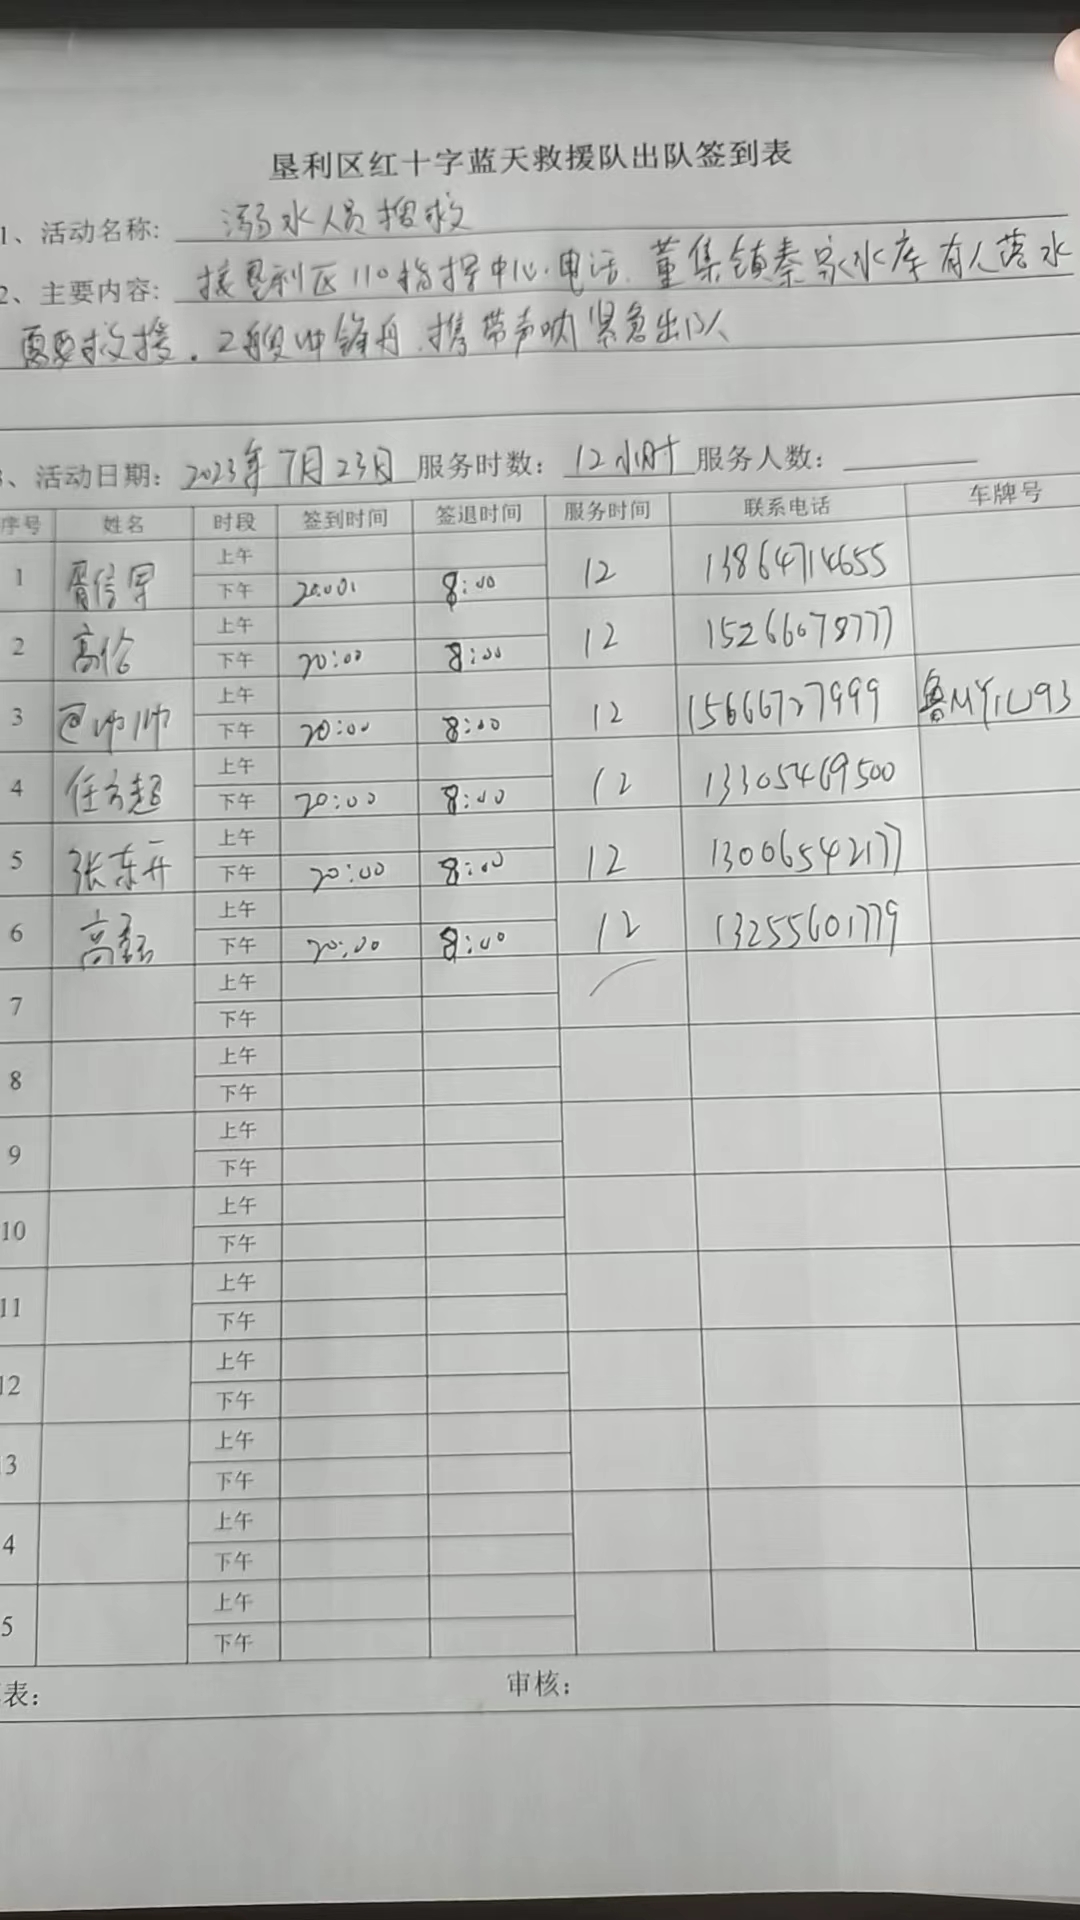 垦利区红十字蓝天救援队出队签到表
1、活动名称: 溺水人员搜救
2、主要内容: 接垦利区110指挥中心电话.董集镇秦家水库有人落水
需要救援.2艘冲锋舟.携带声呐紧急出队
、活动日期: 2023年7月23日 服务时数: 12小时 服务人数:
序号 姓名 时段 签到时间 签退时间 服务时间 联系电话 车牌号
1 上午
下午 20:00 8:00 12 13864714655
2 高伦 上午
下午 20:00 8:00 12 15266078777
3 帅帅 上午
下午 20:00 8:00 12 15666727999 鲁MY1U93
4 任方超 上午
下午 20:00 8:00 12 13305469500
5 张东升 上午
下午 20:00 8:00 12 13006542177
6 高磊 上午
下午 20:00 8:00 12 13255601779
7 上午
下午
8 上午
下午
9 上午
下午
10 上午
下午
11 上午
下午
12 上午
下午
3 上午
下午
4 上午
下午
5 上午
下午
表: 审核: